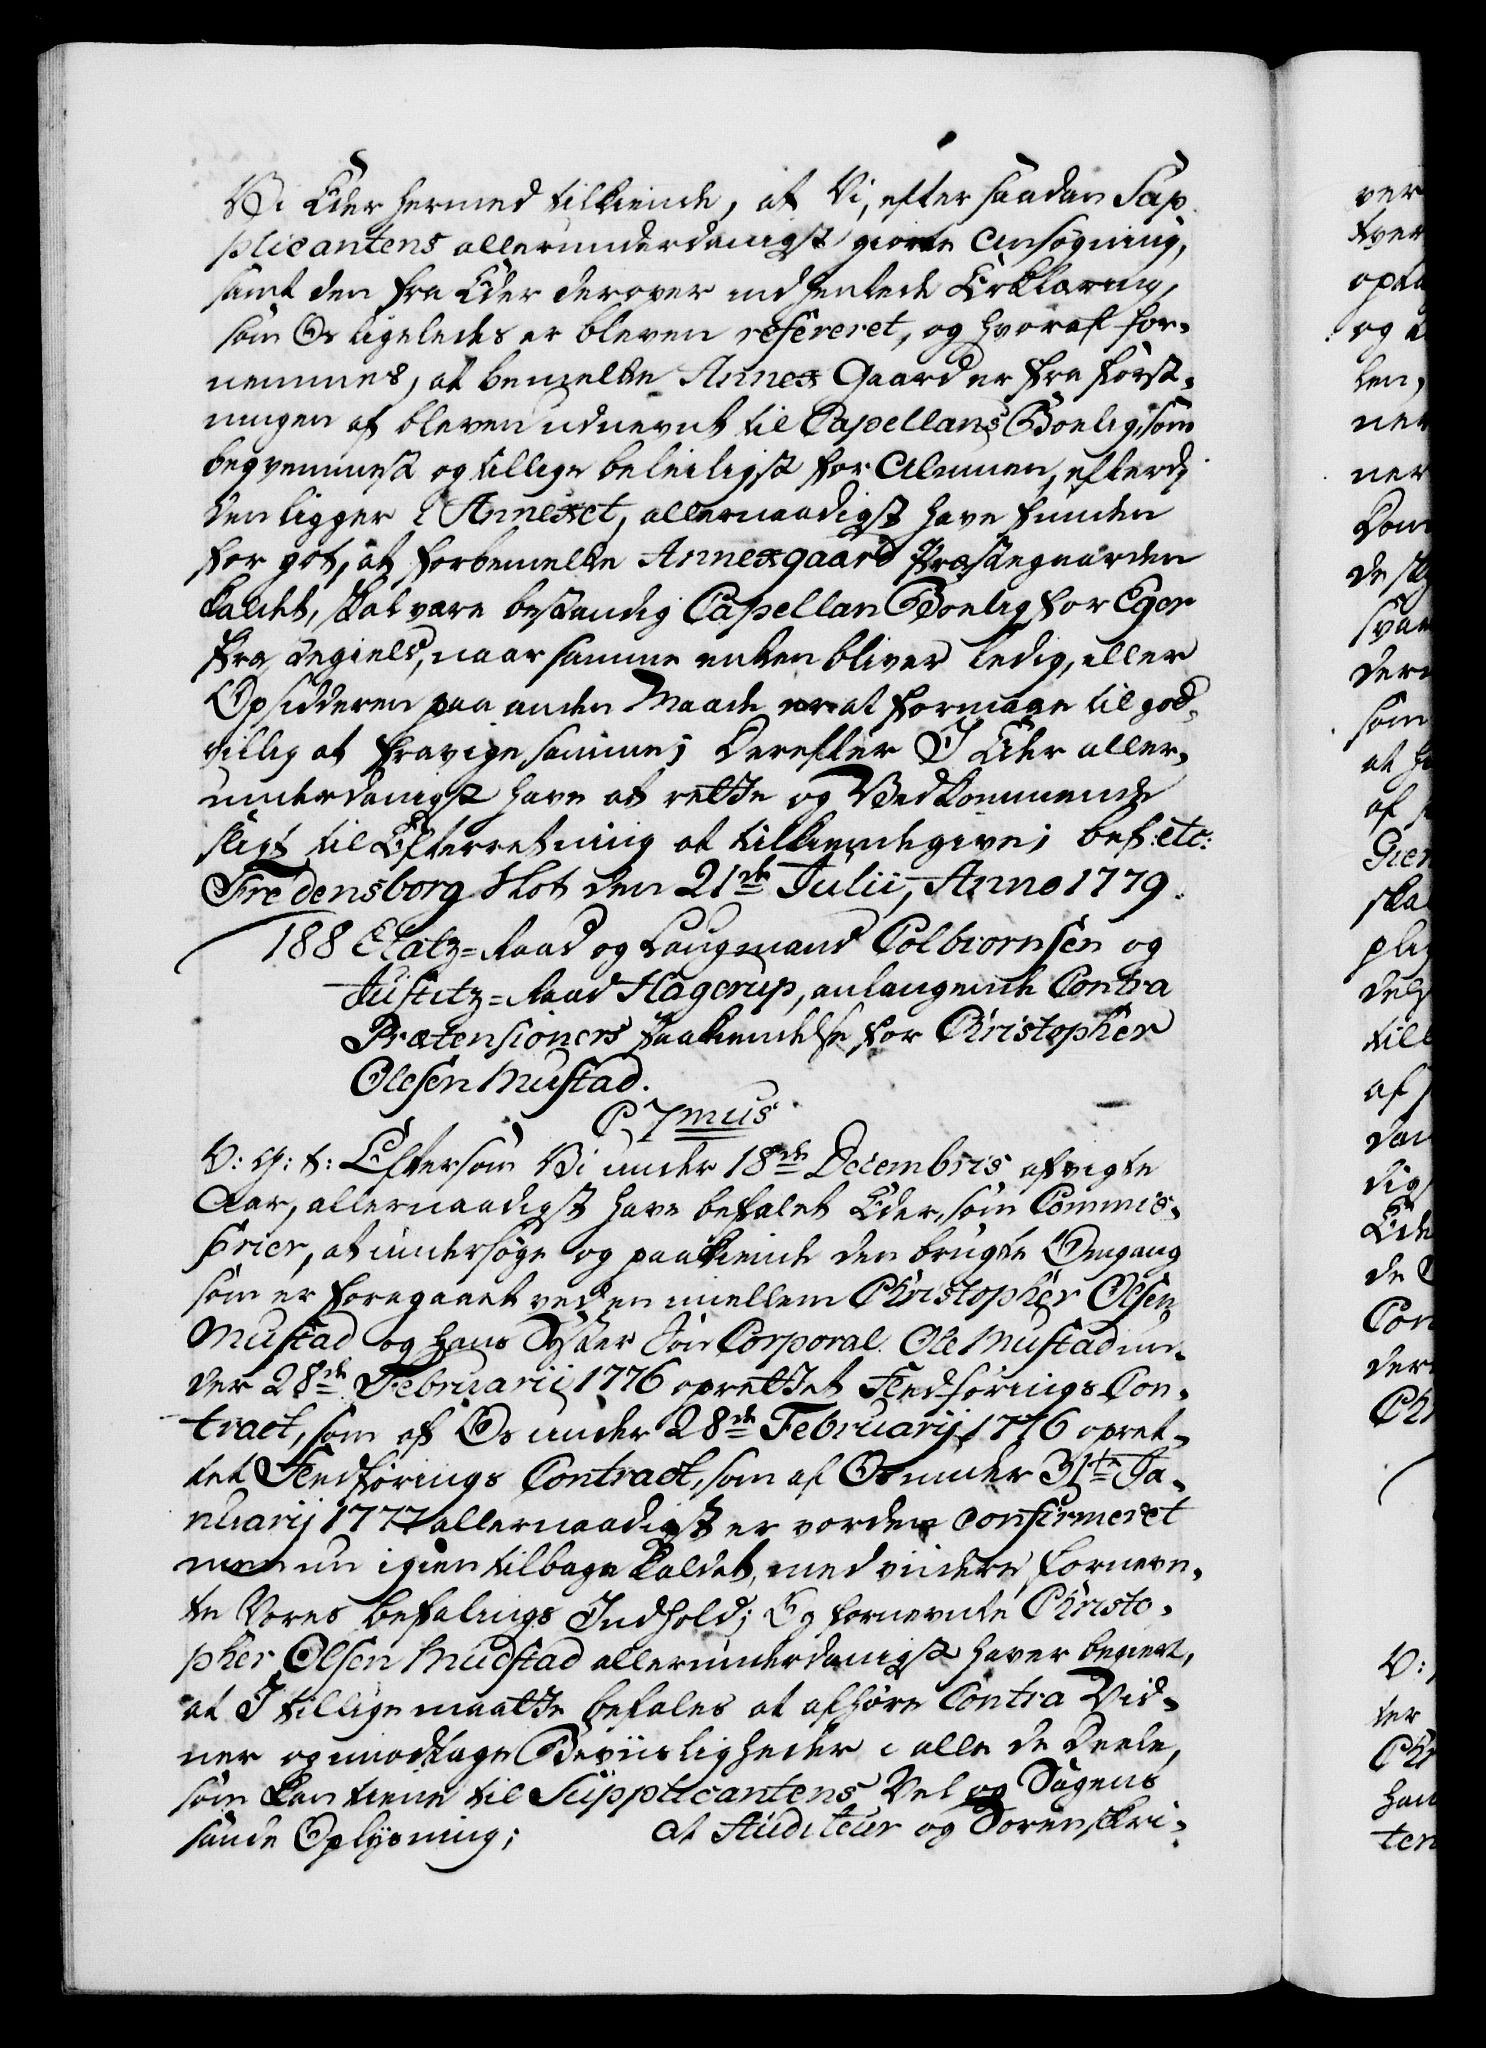 Vi Eder hermed tilkiende, at Vi, efter saadan Sup¬
plicantens allerunderdanigst giorte Ansøgning,
samt den fra Eder derover indhentede Erklæring,
som Os ligeledes er bleven refereret, og hvoraf for¬
nemmes, at bemelte Annex Gaard er fra Først¬
ningen af bleven udnevnt til Capellans Boelig, som
beqvemmest og tillige beleiligst for Almuen, efterdi
den ligger i Annexet, allernaadigst have funden
for got, at forbemelte Annexgaard Præstegaarden
kaldet, skal være bestandig Capellan Boelig for Eger
Præstegield, naar samme enten bliver ledig, eller
Opsidderen paa anden Maade er at formaae til god¬
villig at fravige samme; Derefter I Eder aller¬
underdanigst have at rette og Vedkommende
sligt til Efterretning at tilkiendegive; bef: etc:
Fredensborg Slot den 21de Julii, Anno 1779.
188 Etatz=Raad og Laugmand Colbiornsen og
Justitz=Raad Hagerup, anlangende Contra
Prætensioners Paakiendelse for Christopher
Olesen Mustad.
C 7mus
V: G: T: Eftersom Vi under 18de Decembris afvigte
Aar, allernaadigst have befalet Eder, som Commis¬
sarier, at undersøge og paakiende den brugte Omgang
som er foregaaet ved en imellem Christopher Olsen
Mustad og hans Syster Søn Corporal Ole Mustad un¬
der 28de Februarii 1776 oprettet Fledførings Con¬
tract, som af Os under 28de Februarij 1776 opret¬
tet Fledførings Contract, som af Os under 31te Ja¬
nuarij 1777 allernaadigst er vorden confirmeret
men nu igien tilbage kaldet, med videre fornevn¬
te Vores befalings Indhold; Og fornevnte Christo¬
pher Olsen Mudstad allerunderdanigst haver begiert,
at I tillige maatte befales at afhøre Contra Vid¬
ner og modtage Beviisligheder i alle de Deele,
som kan tiene til Supplicantens Vel og Sagens
sande Oplysning; At Auditeur og Sorenskri¬